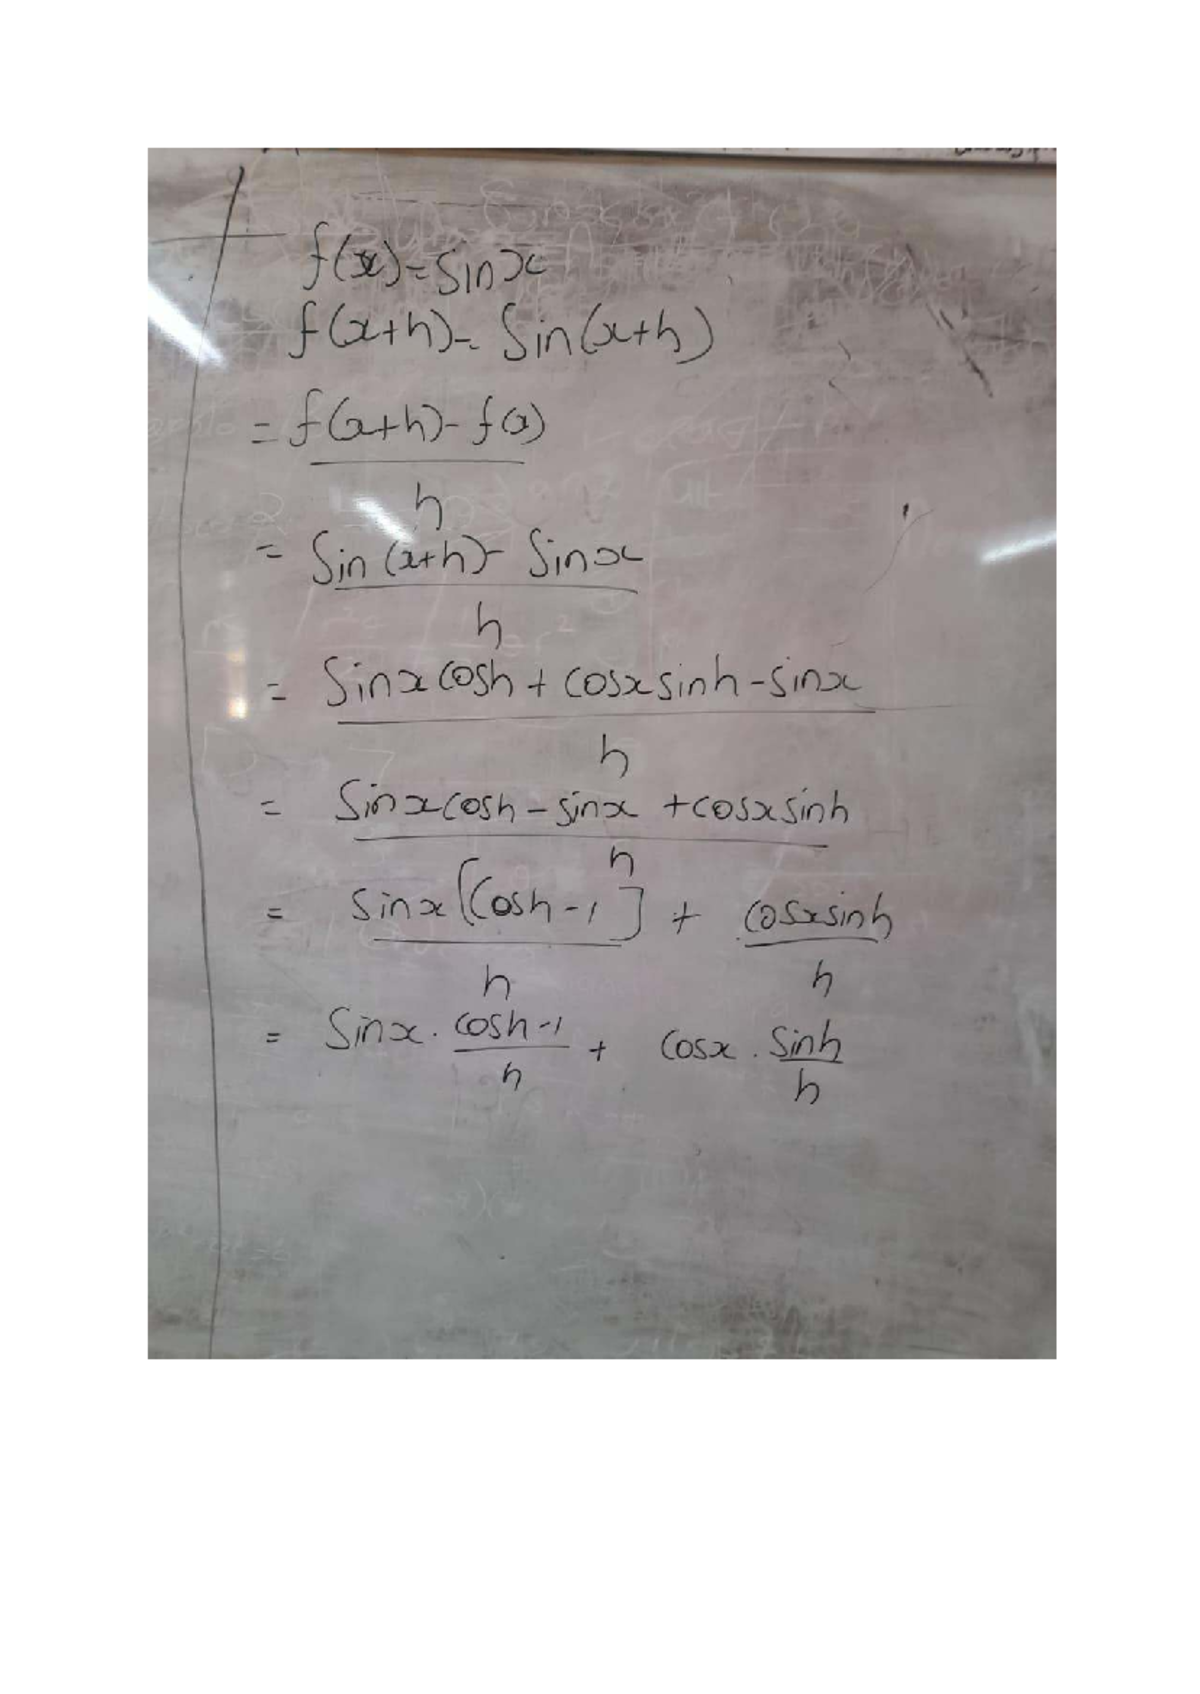 f(x)=sinx
f(x+h)= Sin(x+h)
= f(x+h)-f(x)
h
= Sin(x+h)- Sinx
h
= Sinxcosh+cosxsinh-sinx
h
= Sinxcosh-sinx+cosxsinh
h
= Sinx[Cosh-1] + cosxsinh
h h
= Sinx. cosh-1 + cosx. sinh
h h